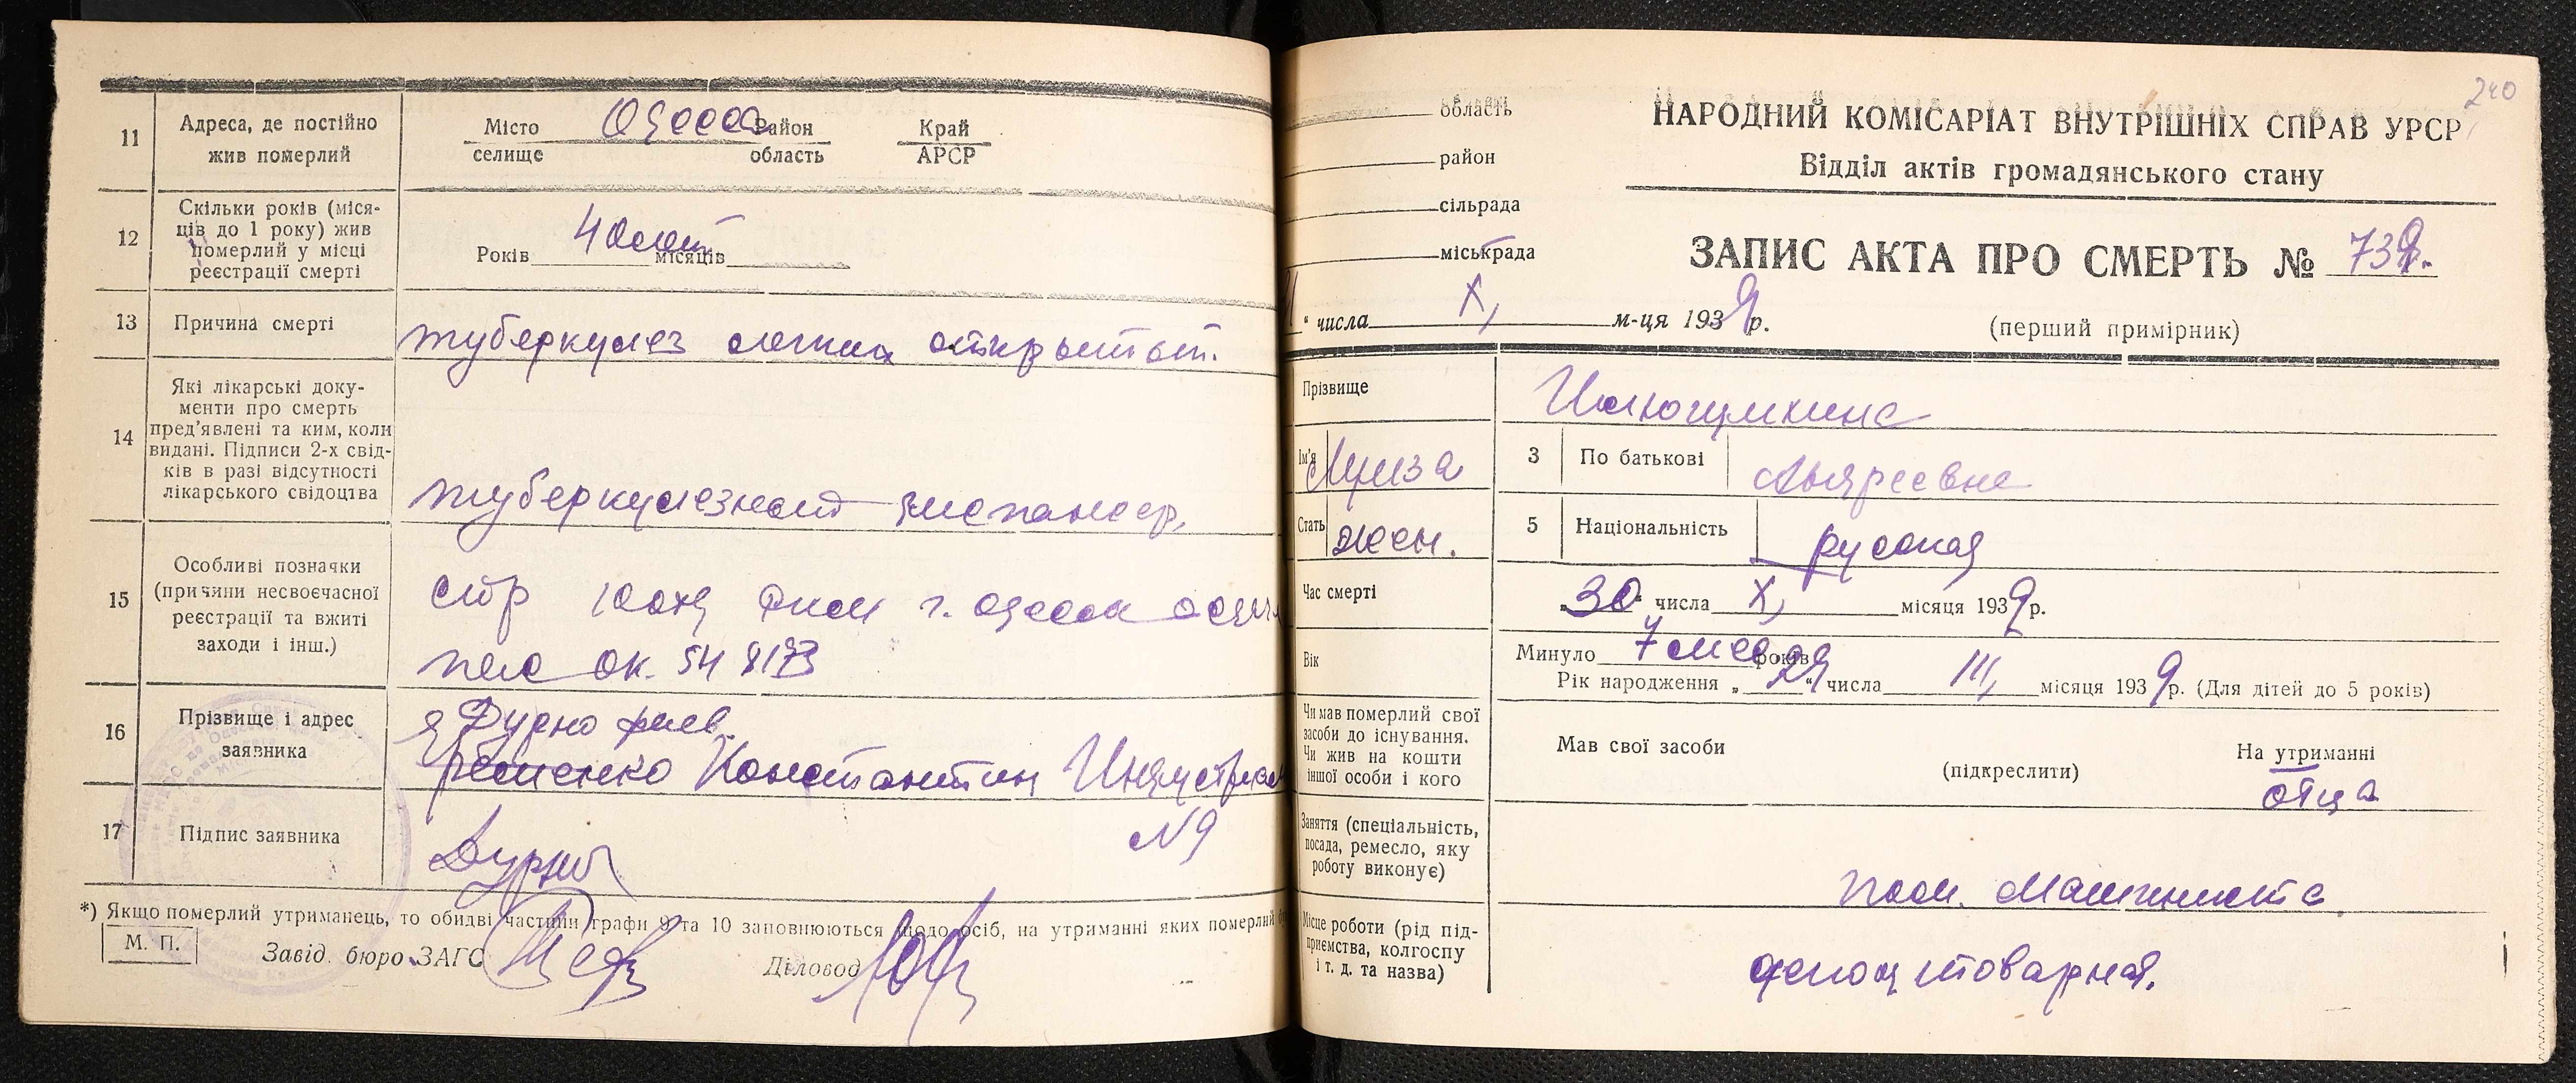 11
Адреса, де постійно
жив померлий
Місто Одесса Район Край
селище область АРСР
12
Скільки років (міся-
ців до 1 року) жив
померлий у місці
реєстрації смерті
Років місяців
13
Причина смерті
туберкулез открытый.
14
Які лікарські доку-
менти про смерть
пред'явлені та ким, коли
видані. Підписи 2-х свід-
ків в разі відсутності
лікарського свідоцтва
туберкулезный диспансер.
15
Особливі позначки
(причини несвоєчасної
реєстрації та вжиті
заходи і інш.)
г. Одесса
ок. 54
16
Прізвище і адрес
заявника
я Дурно
Константин
17
Підпис заявника
Дурно
№9
*) Якщо померлий утриманець, то обидві частини графи 9 та 10 заповнюються щодо осіб, на утриманні яких померлий
М. П.
Завід. бюро ЗАГС
Діловод
240
область
район
сільрада
міськрада
НАРОДНИЙ КОМІСАРІАТ ВНУТРІШНІХ СПРАВ УРСР
Відділ актів громадянського стану
ЗАПИС АКТА ПРО СМЕРТЬ №
“ числа X, м-ця 1939 р.
(перший примірник)
Прізвище
Ім'я Луиза
3 По батькові Андреевна
Стать жен.
5 Національність русская
Час смерті
„30“ числа X, місяця 1939 р.
Вік
Минуло 7 мес років
Рік народження „29“ числа III, місяця 1939 р. (Для дітей до 5 років)
Чи мав померлий свої
засоби до існування.
Чи жив на кошти
іншої особи і кого
Мав свої засоби
(підкреслити)
На утриманні
отца
Заняття (спеціальність,
посада, ремесло, яку
роботу виконує)
пом. Машиниста
Місце роботи (рід під-
приємства, колгоспу
і т. д. та назва)
депо товарная.